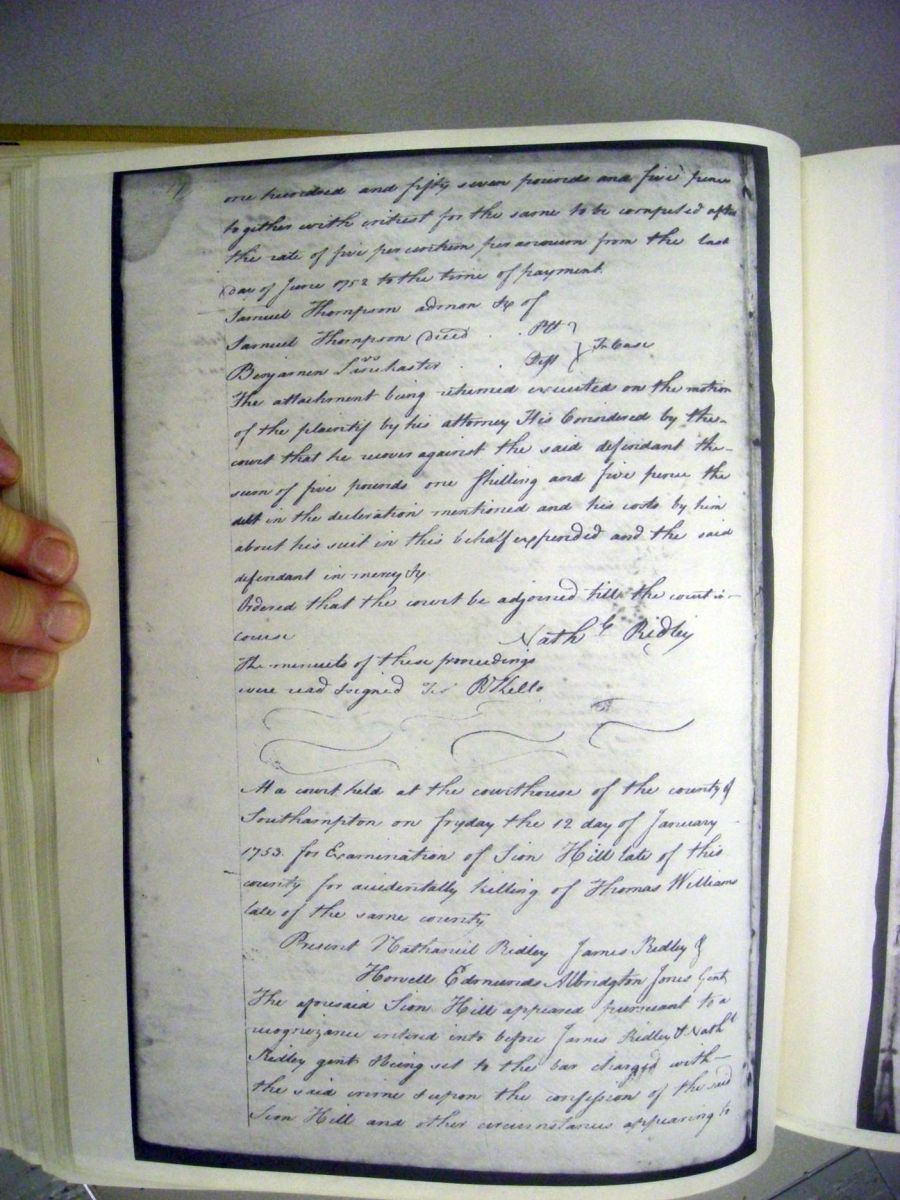 one hundred and fifty seven pounds and five pence
together with intrest for the same to be computed after
the rate of five per centum per annum from the last
day of June 1752 to the time of payment.
Samuel Thompson admon &c of
Samuel Thompson Decd . . Plt
In Case
Benjamin Lanchaster . . Deft
The attachment being returned executed on the motion
of the plaintif by his attorney It is Considered by the
court that he recover against the said defendant the
sum of five pounds one shilling and five pence the
debt in the decleration mentioned and his costs by him
about his suit in this behalf expended and the said
defendant in mercy &c
Ordered that the court be adjorned till the court in
course
Nathl Ridley
The menuets of these proceedings
were read & signed Tes R Kello
At a court held at the courthouse of the county of
Southampton on fryday the 12 day of January
1753. for Examenation of Sion Hill late of this
county for accidentally killing of Thomas Williams
late of the same county
Present Nathaniel Ridley James Ridley &
Howell Edmunds Albridgton Jones Gent
The aforesaid Sion Hill appeared pursuant to a
recognizance entered into before James Ridley & Nathl
Ridley gent & being set to the bar charged with
the said crime & upon the confession of the said
Sion Hill and other circumstances appearing to